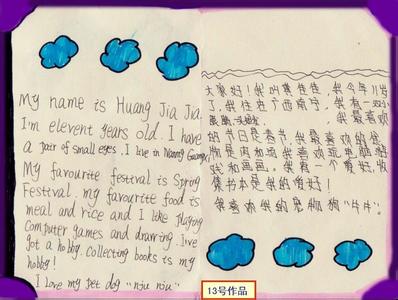 My name is Huang Jia Jia,
I'm elevent years old. I have
a pair of small eyes. I live in Nanning Guangxi
My favourite festival is Spring
Festival. my favourite food is
meal and rice and I like playing
computer games and drawring. I've
got a hobby. Collecting books is my
hobby!
I love my pet dog "niu niu"
大家好!我叫黄佳佳,我今年11岁
了,我住在广西南宁,我有一双小
眼睛,我最喜欢
的节日是春节,我最喜欢的食
物是肉和饭,我喜欢玩电脑游
戏和画画。我有一个爱好,收
集书本是我的爱好!
我喜欢我的宠物狗"牛牛"。
13号作品